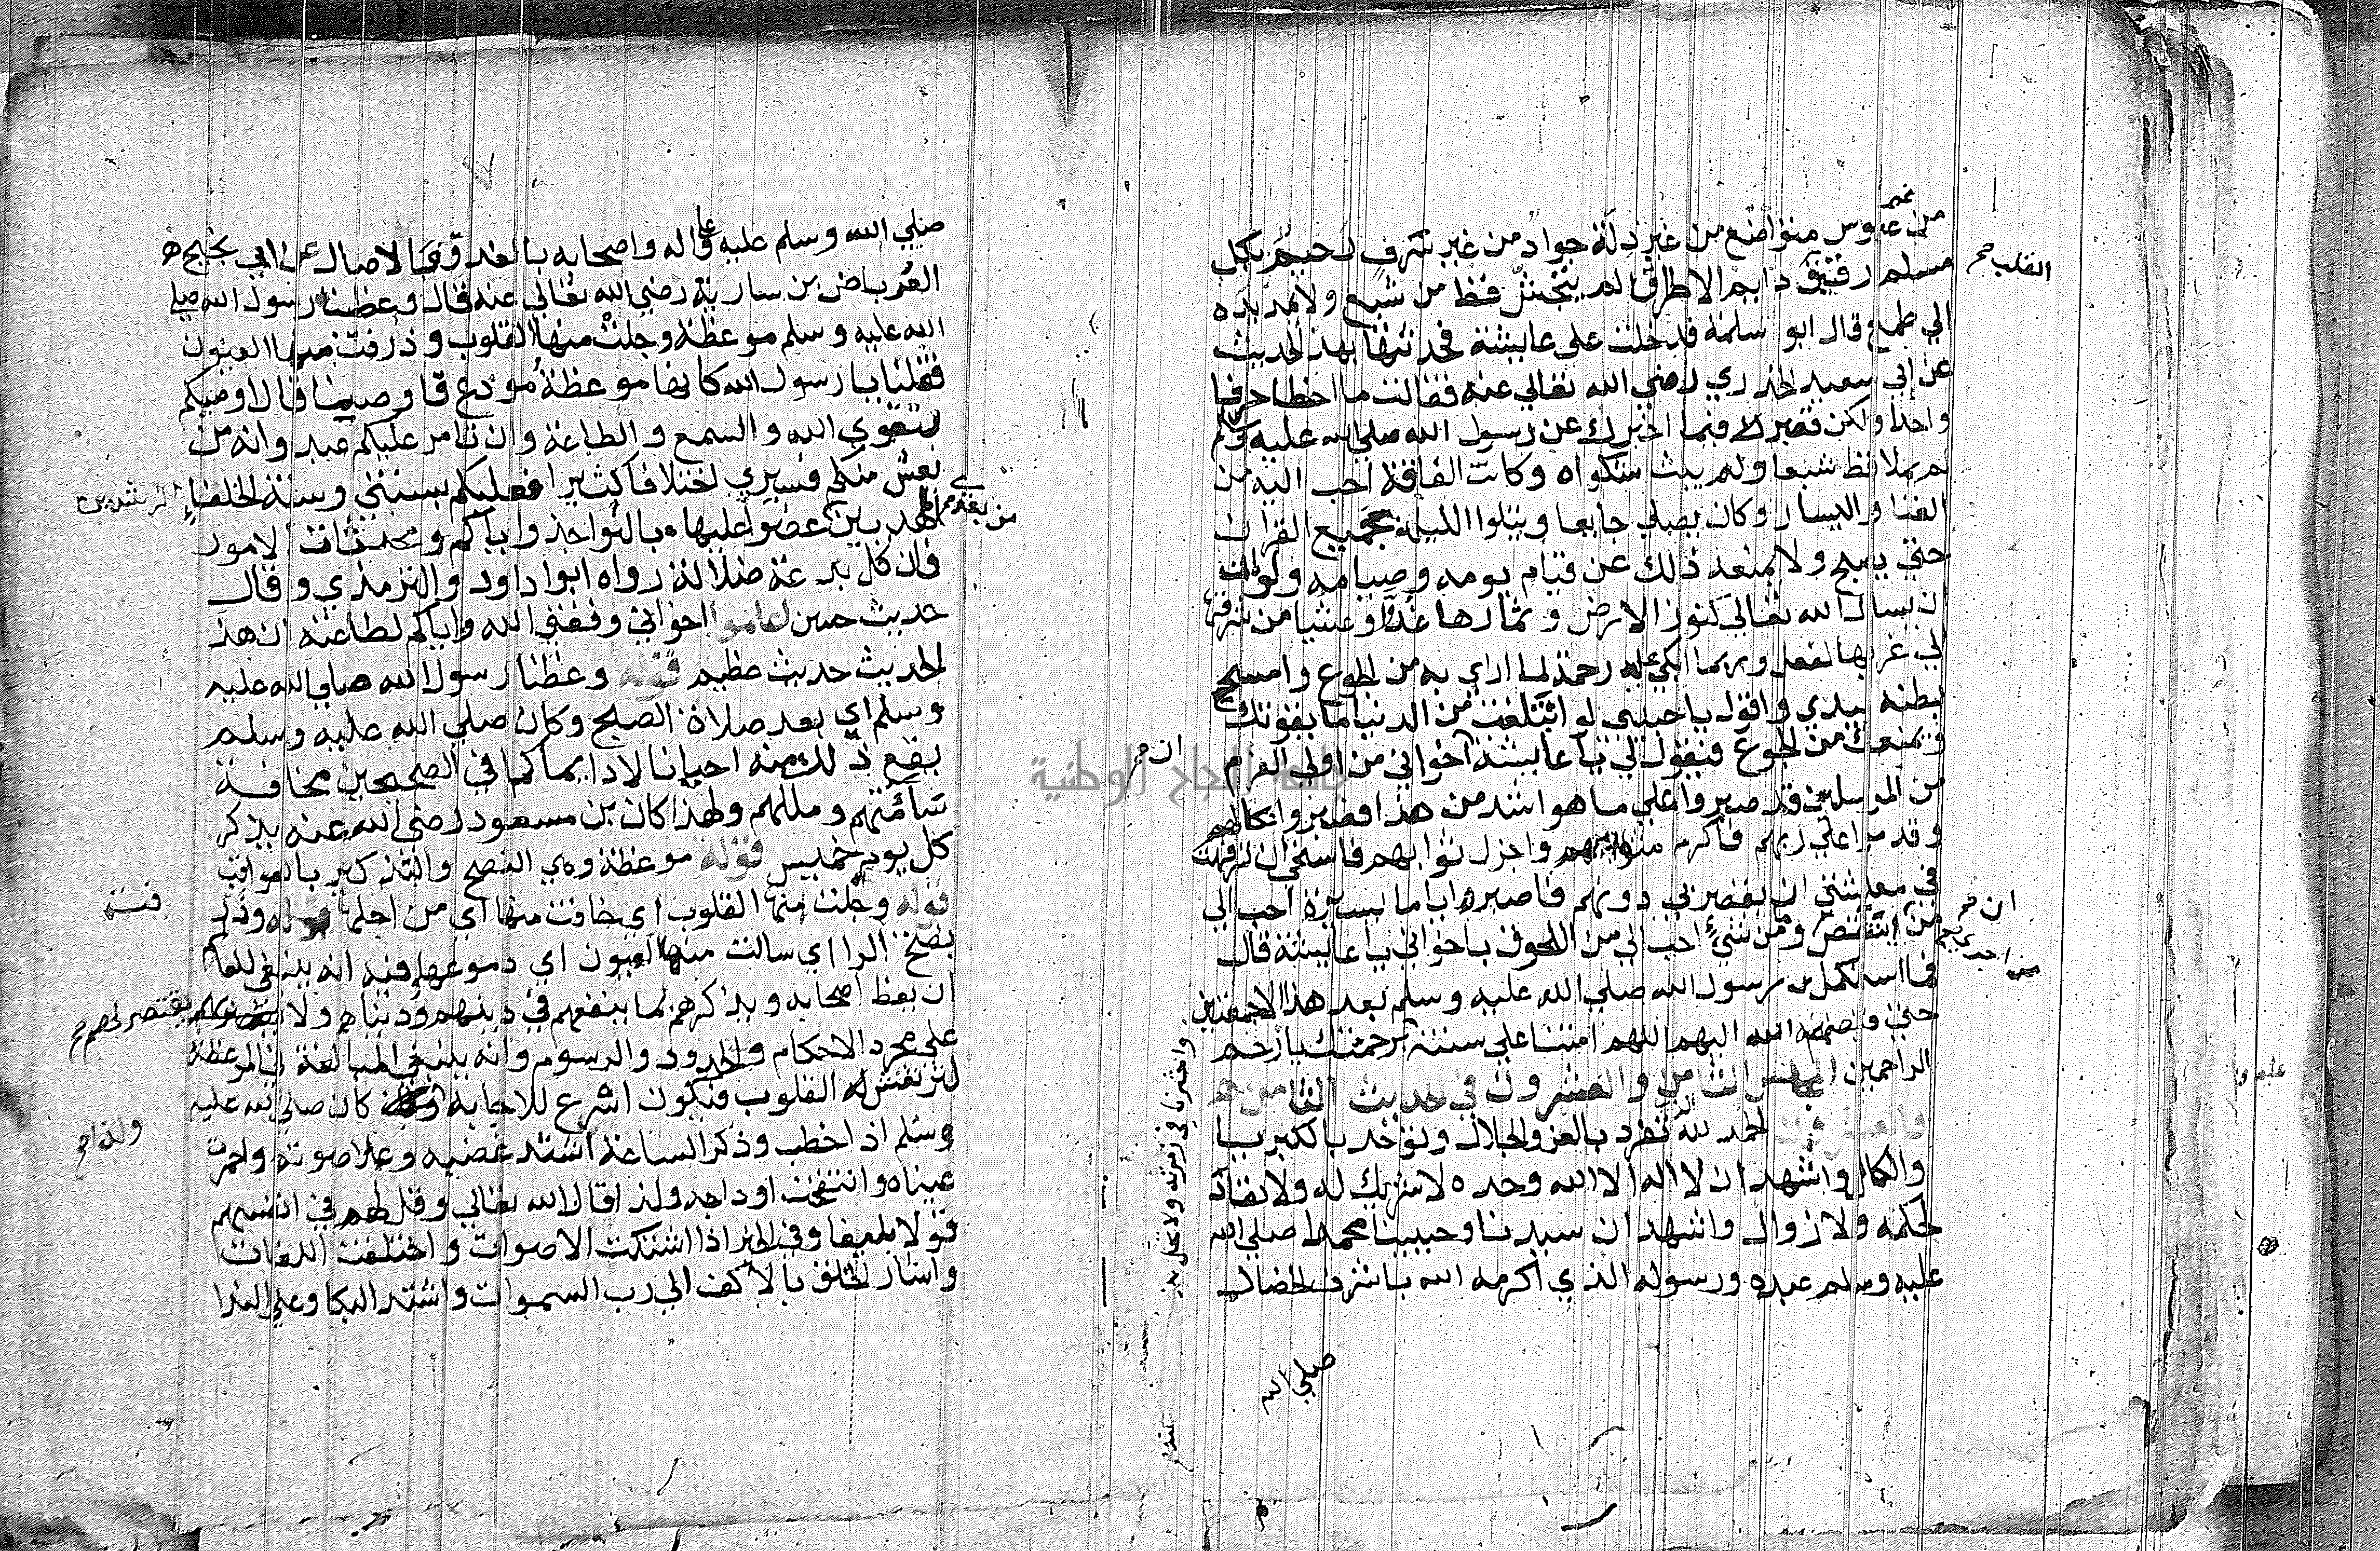 من غير عبوس متواضع من غير ذلة جواد من غير سرف رحيم بكل
القلب صح
مسلم رقيق دايم الاطراق لم يتجش قط من شبع ولا مد يده
الي طمع قال ابو سلمة فدخلت علي عايشة فحدثتها بهذ الحديث
عن ابي سعيد الخدري رضي الله تعالي عنه فقالت ما اخطا حرفا
واحدا ولكن قصر الا فيما اخبرك عن رسول الله صلي الله عليه وسلم
لم يملا قط شبعا ولم يبث شكواه وكانت الفاقة احب اليه من
الغنا واليسار وكان يصلي جايعا ويتلوا الليلة جميع القران
حتي يصبح ولا يمنعه ذلك عن قيام يومه وصيامه ولو شا
ان يسال الله تعالي كنوز الارض وثمارها غدا وعشيا من شرقها
الي غربها لفعل وربما ابكي عليه رحمة لما اراي به من الجوع وامسح
بطنه بيدي واقول يا حبيبي لو اتبلغت من الدنيا ما يقوتك
ويمنعك من الجوع فيقول لي يا عايشة اخواني من اولي العزم
ان صح
من المرسلين قد صبروا علي ما هو اشد من هذا فصبروا
وقدموا علي ربهم فاكرم واجزل ثوابهم فاستحي ان ترفهت
في معيشتي ان يقصر بي دونهم فاصبر اياما يسيرة احب الي
ان صح
من ينتقص ومن شيء احب الي من اللحوق باخواني يا عايشة قالت
فما استكمل رسول الله صلي الله عليه وسلم بعد هذا الاجمعتين
حتي قبضه الله اليه اللهم امتنا علي سنته برحمتك يا ارحم
واحشرنا في زمرته ولا
الراحمين المجلس الثامن والعشرون في حديث الثامن
والعشرون الحمد لله تفرد بالعز والجلال وتوحد بالكبريا
والكمال واشهد ان لا اله الا الله وحده لا شريك له ولا نفاد
لحكمه ولا زوال واشهد ان سيدنا وحبيبنا محمدا صلي الله
عليه وسلم عبده ورسوله الذي اكرمه الله باشرف الخصال
صلي الله
صلي الله وسلم عليه وعلي اله واصحابه بالغدو والاصال عن ابي نجيح
العرباض بن سارية رضي الله تعالي عنه قال وعظنا رسول الله صلي
الله عليه وسلم موعظة وجلت منها القلوب وذرفت منها العيون
فقلنا يا رسول الله كانها موعظة مودع فاوصينا قال اوصيكم
بتقوي الله والسمع والطاعة وان تامر عليكم عبد وانه من
يعش منكم فسيري اختلافا كثيرا فعليكم بسنتي وسنة الخلفاء الرشدين
من بعدي
المهديين عضوا عليها بالنواجذ واياكم ومحدثات الامور
فان كل بدعة ضلالة رواه ابوا داود والترمذي وقال
حديث حسن اعلموا اخواني وفقني الله واياكم لطاعته ان هذ
الحديث حديث عظيم قوله وعظنا رسول الله صلي الله عليه
وسلم اي بعد صلاة الصبح وكان صلي الله عليه وسلم
يقع ذلك منه احيانا لا دايما كما في الصحيحين مخافة
سآمتهم ومللهم ولهذا كان بن مسعود رضي الله عنه يذكر
كل يوم خميس قوله موعظة وهي النصح والتذكير بالعواقب
قوله وجلت منها القلوب اي خافت منها اي من اجلها قوله وذرفت
بفتح الرا اي سالت منها العيون اي دموعها وفيه انه ينبغي للعالم
ان يعظ اصحابه ويذكرهم بما ينفعهم في دينهم ودنياهم ولا يقتصر لهم صح
علي مجرد الاحكام والحدود والرسوم وانه ينبغي المبالغة في الموعظة
القلوب فتكون اسرع للاجابة كان صلي الله عليه
ولذا صح
وسلم اذا خطب وذكر الساعة اشتد غضبه وعلا صوته واحمرت
عيناه وانتفخت اوداجه ولذا قال الله تعالي وقل لهم في انفسهم
قولا بليغا وفي الخبر اذا اشتكت الاصوات واختلفت اللغات
واشار الخلق بالاكف الي رب السموات واشتد البكا وعلي الندا
جامعة النجاح الوطنية